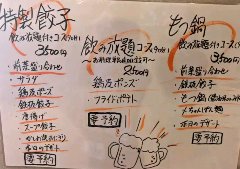 特製餃子
飲み放題付きコース
3500円
・前菜盛り合わせ
・サラダ
・鶏皮ポンズ
・鉄板餃子
・唐揚げ
・スープ餃子
・本日のデザート
要予約
飲み放題コース
2500円
鶏皮ポンズ
フライドポテト
要予約
もつ鍋
飲み放題付きコース
3500円
・前菜盛り合わせ
・鉄板餃子
・もつ鍋
・〆ちゃんぽん麺
本日のデザート
要予約